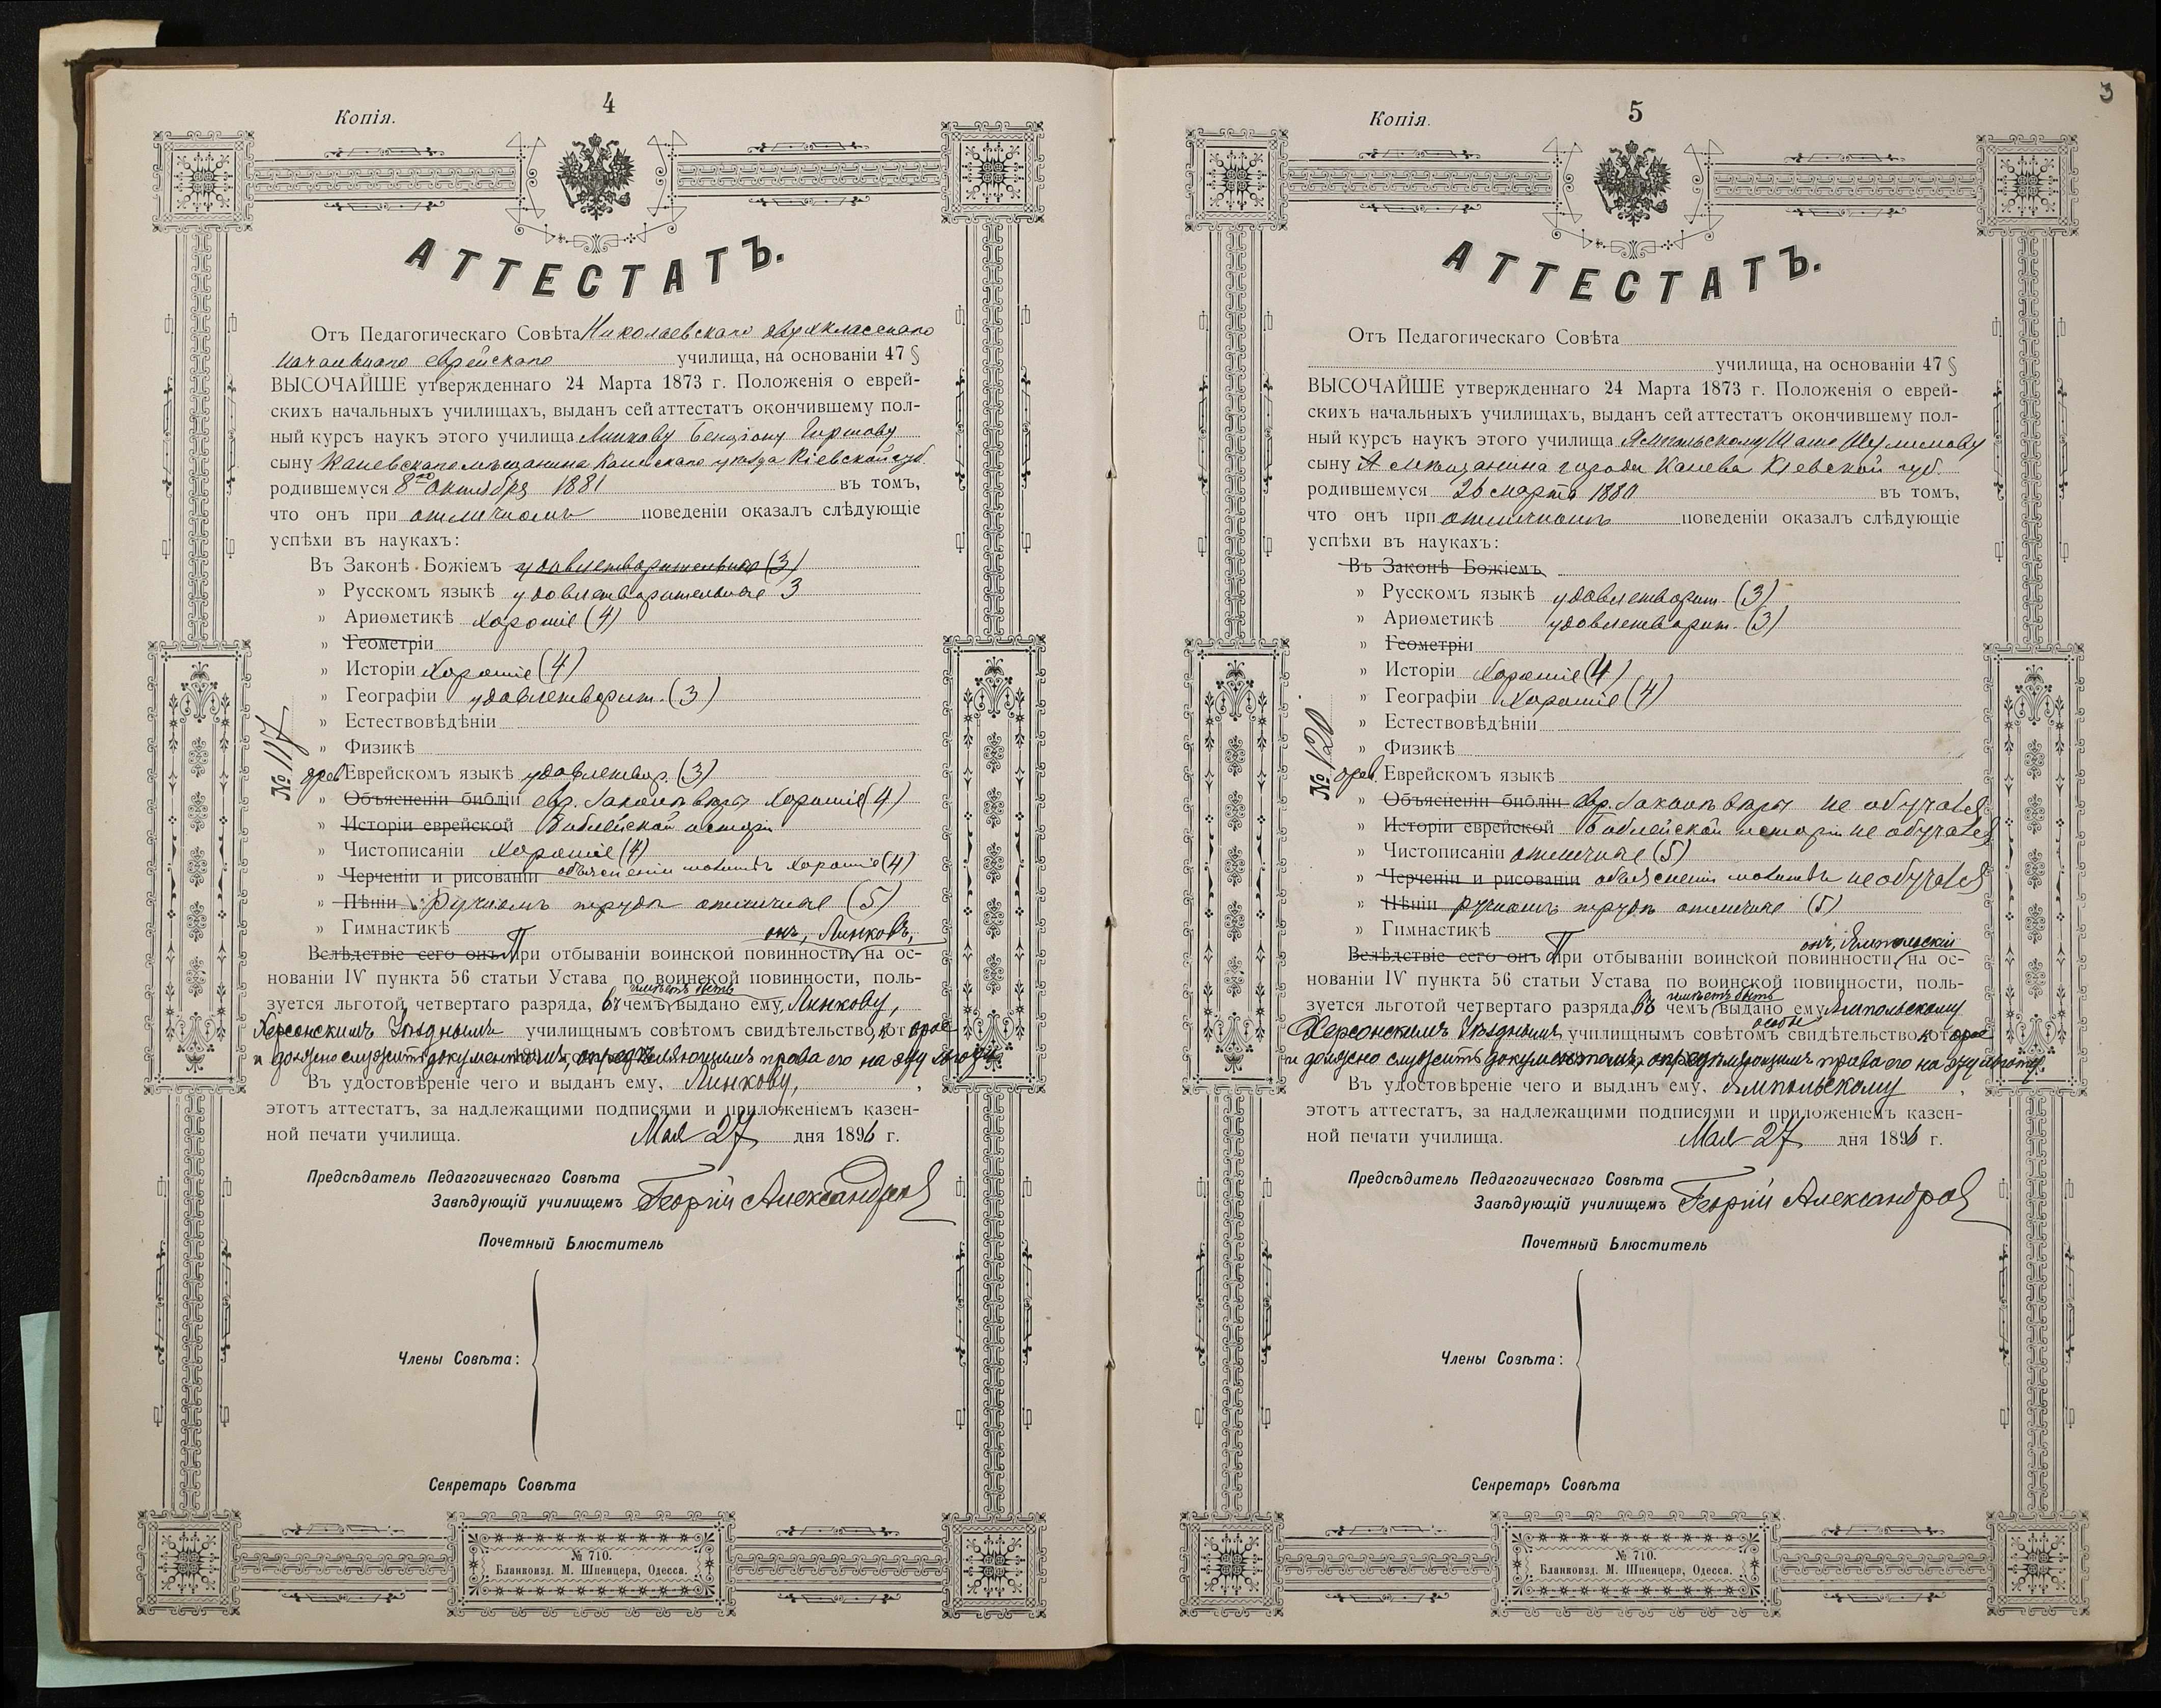 4
Копія.
АТТЕСТАТЪ.
Отъ Педагогическаго Совѣта Николаевскаго двухкласснаго
начальнаго еврейскаго училища, на основаніи 47 §
ВЫСОЧАЙШЕ утвержденнаго 24 Марта 1873 г. Положенія о еврей-
скихъ начальныхъ училищахъ, выданъ сей аттестатъ окончившему пол-
ный курсъ наукъ этого училища Линкову Бенціону Гиршову
сыну Каневскаго мѣщанина Каневскаго уѣзда Кіевской губ.
родившемуся 8го Октября 1881 въ томъ,
что онъ при отличномъ поведеніи оказалъ слѣдующіе
успѣхи въ наукахъ:
Въ Законѣ Божіемъ удовлетворительные (3)
» Русскомъ языкѣ удовлетворительные 3
» Ариѳметикѣ хорошіе (4)
» Геометріи
» Исторіи хорошіе (4)
» Географіи удовлетворит. (3)
» Естествовѣдѣніи
» Физикѣ
древ Еврейскомъ языкѣ удовлетвор. (3)
» Объясненіи библіи евр. Законѣ вѣры хорошіе (4)
» Исторіи еврейской Библейской исторіи
» Чистописаніи хорошіе (4)
» Черченіи и рисованіи объясненіи молитвъ хорошіе (4)
» Пѣніи Ручномъ трудѣ отличные (5)
» Гимнастикѣ
онъ, Линковъ,
Вслѣдствіе сего онъ При отбываніи воинской повинности, на ос-
нованіи IV пункта 56 статьи Устава по воинской повинности, поль-
зуется льготой четвертаго разряда, въ чемъ имѣетъ быть выдано ему, Линкову,
Херсонскимъ Уѣзднымъ училищнымъ совѣтомъ свидѣтельство, которое
и должно служить документомъ, опредѣляющимъ права его на эту льготу.
Въ удостовѣреніе чего и выданъ ему, Линкову,
этотъ аттестатъ, за надлежащими подписями и приложеніемъ казен-
ной печати училища. Мая 27 дня 1896 г.
№ 117
Предсѣдатель Педагогическаго Совѣта
Завѣдующій училищемъ Георгій Александровъ
Почетный Блюститель
Члены Совѣта:
Секретарь Совѣта
№ 710.
Бланкоизд. М. Шпенцера, Одесса.
3
5
Копія.
АТТЕСТАТЪ.
Отъ Педагогическаго Совѣта
училища, на основаніи 47 §
ВЫСОЧАЙШЕ утвержденнаго 24 Марта 1873 г. Положенія о еврей-
скихъ начальныхъ училищахъ, выданъ сей аттестатъ окончившему пол-
ный курсъ наукъ этого училища Ямпольскому
сыну мѣщанина города Канева Кіевской губ.
родившемуся 26 марта 1880 въ томъ,
что онъ при отличномъ поведеніи оказалъ слѣдующіе
успѣхи въ наукахъ:
Въ Законѣ Божіемъ
» Русскомъ языкѣ удовлетворит. (3)
» Ариѳметикѣ удовлетворит. (3)
» Геометріи
» Исторіи хорошіе (4)
» Географіи хорошіе (4)
» Естествовѣдѣніи
» Физикѣ
древ. Еврейскомъ языкѣ
» Объясненіи библіи евр. Законѣ вѣры не обучался
» Исторіи еврейской Библейской исторіи не обучался
» Чистописаніи отличные (5)
» Черченіи и рисованіи объясненіи молитвъ не обучался
» Пѣніи Ручномъ трудѣ отличные (5)
» Гимнастикѣ
онъ, Ямпольскій
Вслѣдствіе сего онъ При отбываніи воинской повинности, на ос-
нованіи IV пункта 56 статьи Устава по воинской повинности, поль-
зуется льготой четвертаго разряда въ чемъ имѣетъ быть выдано ему Ямпольскому
Херсонскимъ Уѣзднымъ училищнымъ совѣтомъ особое свидѣтельство которое
и должно служить документомъ, опредѣляющимъ права его на эту льготу.
Въ удостовѣреніе чего и выданъ ему, Ямпольскому,
этотъ аттестатъ, за надлежащими подписями и приложеніемъ казен-
ной печати училища. Мая 27 дня 1896 г.
№ 120
Предсѣдатель Педагогическаго Совѣта
Завѣдующій училищемъ Георгій Александровъ
Почетный Блюститель
Члены Совѣта:
Секретарь Совѣта
№ 710.
Бланкоизд. М. Шпенцера, Одесса.